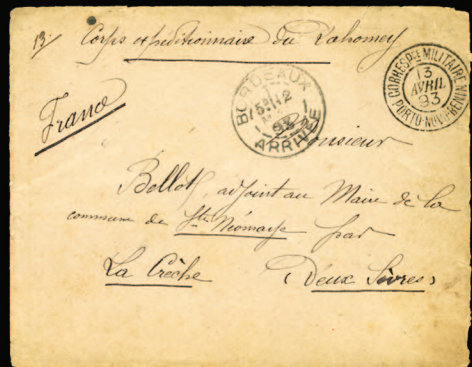 13/ Corps expéditionnaire du Dahomey
CORRESP. MILITAIRE
13
AVRIL
93
PORTO-NOVO BENIN
BORDEAUX
93
ARRIVÉE
France
Monsieur
Bellot, adjoint au Maire de la
commune de Ste Néomaye par
La Crèche (Deux Sèvres)